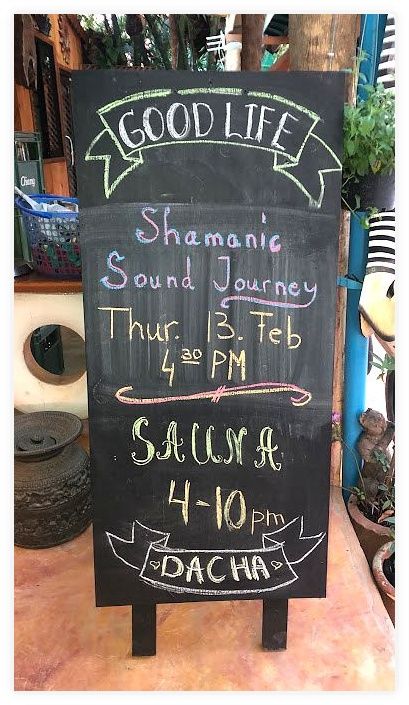 GOOD LIFE
Shamanic
Sound Journey
Thur. 13. Feb
4 30 PM
SAUNA
4-10pm
DACHA
Chang